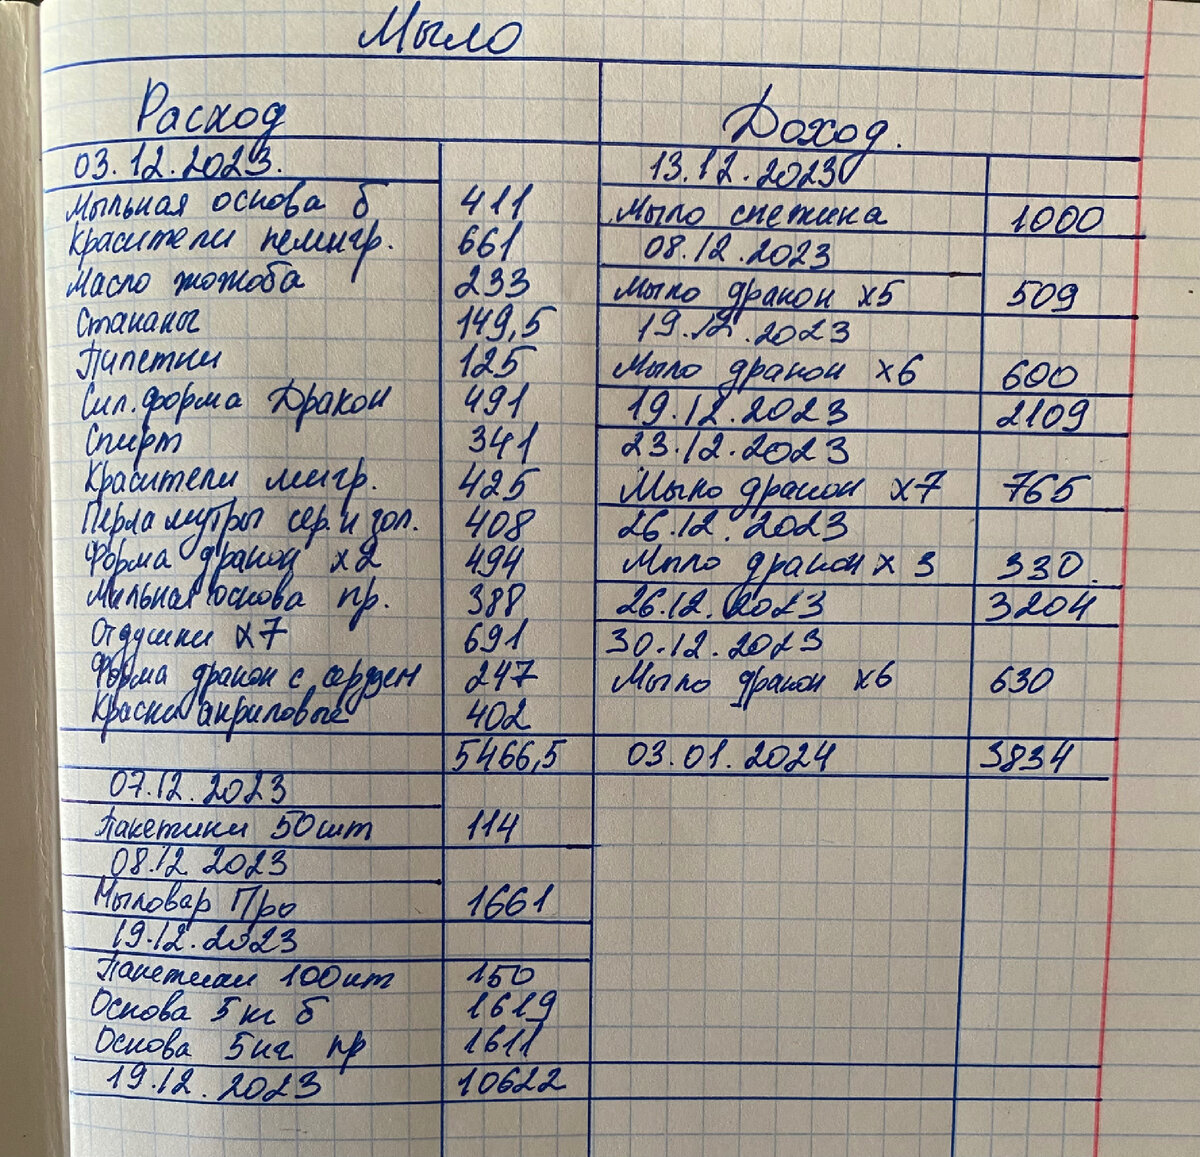 Мыло
Расход
03.12.2023.
Мыльная основа б 411
Красители немигр. 661
Масло жожоба 233
Стаканы 149,5
Пипетки 125
Сил. форма Дракон 491
Спирт 341
Красители мигр. 425
Перламутры сер. и зол. 408
Форма дракон х2 494
Мыльная основа пр. 388
Отдушки х7 691
Форма дракон с сердцем 247
Краски акриловые 402
5466,5
07.12.2023
Пакетики 50шт 114
08.12.2023
Мыловар Про 1661
19.12.2023
Пакетики 100шт 150
Основа 5кг б 1619
Основа 5кг пр 1611
19.12.2023 10622
Доход.
13.12.2023
Мыло снежинка 1000
08.12.2023
Мыло дракон х5 509
19.12.2023
Мыло дракон х6 600
19.12.2023 2109
23.12.2023
Мыло дракон х7 765
26.12.2023
Мыло дракон х 3 330.
26.12.2023 3204
30.12.2023
Мыло дракон х6 630
03.01.2024 3834